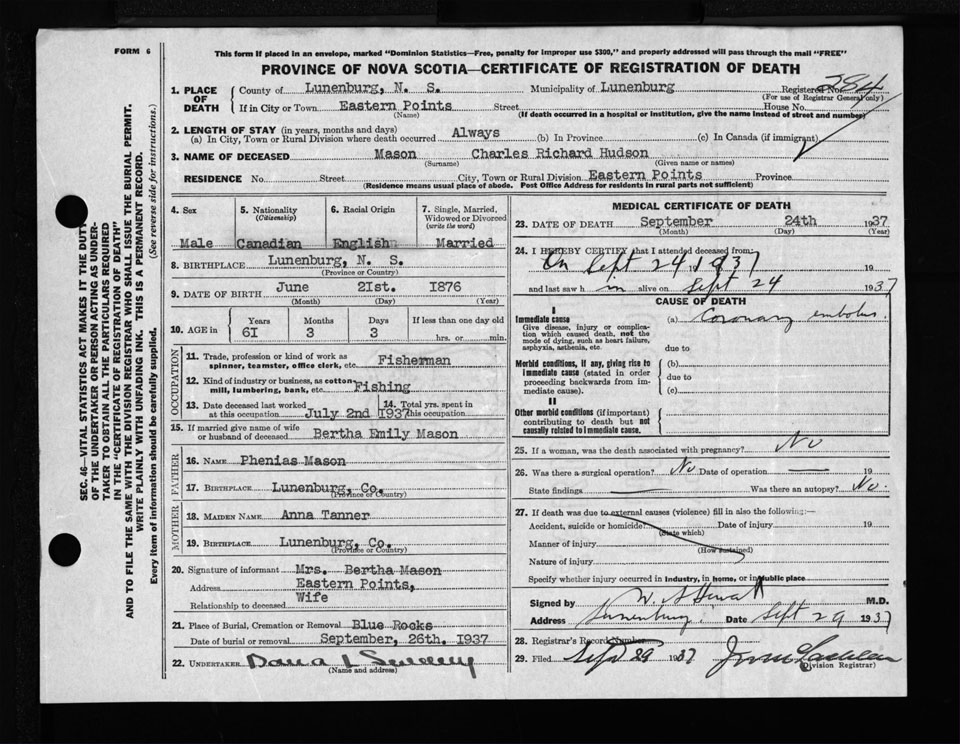 FORM 6
This form if placed in an envelope, marked "Dominion Statistics—Free, penalty for improper use $300," and properly addressed will pass through the mail "FREE"
PROVINCE OF NOVA SCOTIA—CERTIFICATE OF REGISTRATION OF DEATH
SEC. 46—VITAL STATISTICS ACT MAKES IT THE DUTY
OF THE UNDERTAKER OR PERSON ACTING AS UNDER-
TAKER TO OBTAIN ALL THE PARTICULARS REQUIRED
IN THE "CERTIFICATE OF REGISTRATION OF DEATH"
AND TO FILE THE SAME WITH THE DIVISION REGISTRAR WHO SHALL ISSUE THE BURIAL PERMIT.
WRITE PLAINLY WITH UNFADING INK. THIS IS A PERMANENT RECORD.
Every item of information should be carefully supplied. (See reverse side for instructions.)
1. PLACE OF DEATH
County of Lunenburg, N. S. Municipality of Lunenburg Registered No. 384
(For use of Registrar General only)
If in City or Town Eastern Points Street House No.
(Name) (If death occurred in a hospital or institution, give the name instead of street and number)
2. LENGTH OF STAY (in years, months and days)
(a) In City, Town or Rural Division where death occurred Always (b) In Province (c) In Canada (if immigrant)
3. NAME OF DECEASED Mason Charles Richard Hudson
(Surname) (Given name or names)
RESIDENCE No. Street City, Town or Rural Division Eastern Points Province
(Residence means usual place of abode. Post Office Address for residents in rural parts not sufficient)
4. Sex 5. Nationality (Citizenship) 6. Racial Origin 7. Single, Married, Widowed or Divorced (write the word)
Male Canadian English Married
8. BIRTHPLACE Lunenburg, N. S.
(Province or Country)
9. DATE OF BIRTH June 21st. 1876
(Month) (Day) (Year)
10. AGE in Years Months Days If less than one day old
61 3 3 hrs. or min.
OCCUPATION
11. Trade, profession or kind of work as
spinner, teamster, office clerk, etc. Fisherman
12. Kind of industry or business, as cotton
mill, lumbering, bank, etc. Fishing
13. Date deceased last worked 14. Total yrs. spent in
at this occupation July 2nd 1937 this occupation
15. If married give name of wife
or husband of deceased Bertha Emily Mason
FATHER
16. NAME Phenias Mason
17. BIRTHPLACE Lunenburg, Co.
(Province or Country)
MOTHER
18. MAIDEN NAME Anna Tanner
19. BIRTHPLACE Lunenburg, Co.
(Province or Country)
20. Signature of informant Mrs. Bertha Mason
Address Eastern Points,
Relationship to deceased Wife
21. Place of Burial, Cremation or Removal Blue Rocks
Date of burial or removal September, 26th. 1937
22. UNDERTAKER Dana L
(Name and address)
MEDICAL CERTIFICATE OF DEATH
23. DATE OF DEATH September 24th 1937
(Month) (Day) (Year)
24. I HEREBY CERTIFY that I attended deceased from:
On Sept 24 1937 19
and last saw h im alive on Sept 24 1937
CAUSE OF DEATH
I
Immediate cause (a) Coronary embolus.
Give disease, injury or complica-
tion which caused death, not the
mode of dying, such as heart failure,
asphyxia, asthenia, etc. due to
Morbid conditions, if any, giving rise to (b)
immediate cause (stated in order due to
proceeding backwards from im-
mediate cause). (c)
II
Other morbid conditions (if important)
contributing to death but not
causally related to immediate cause.
25. If a woman, was the death associated with pregnancy? No
26. Was there a surgical operation? No Date of operation — 19
State findings — Was there an autopsy? No.
27. If death was due to external causes (violence) fill in also the following:—
Accident, suicide or homicide Date of injury 19
(State which)
Manner of injury
(How sustained)
Nature of injury
Specify whether injury occurred in industry, in home, or in public place
Signed by W. A Hewat M.D.
Address Lunenburg. Date Sept 29 1937
28. Registrar's Record Number
29. Filed Sept 29 1937
(Division Registrar)